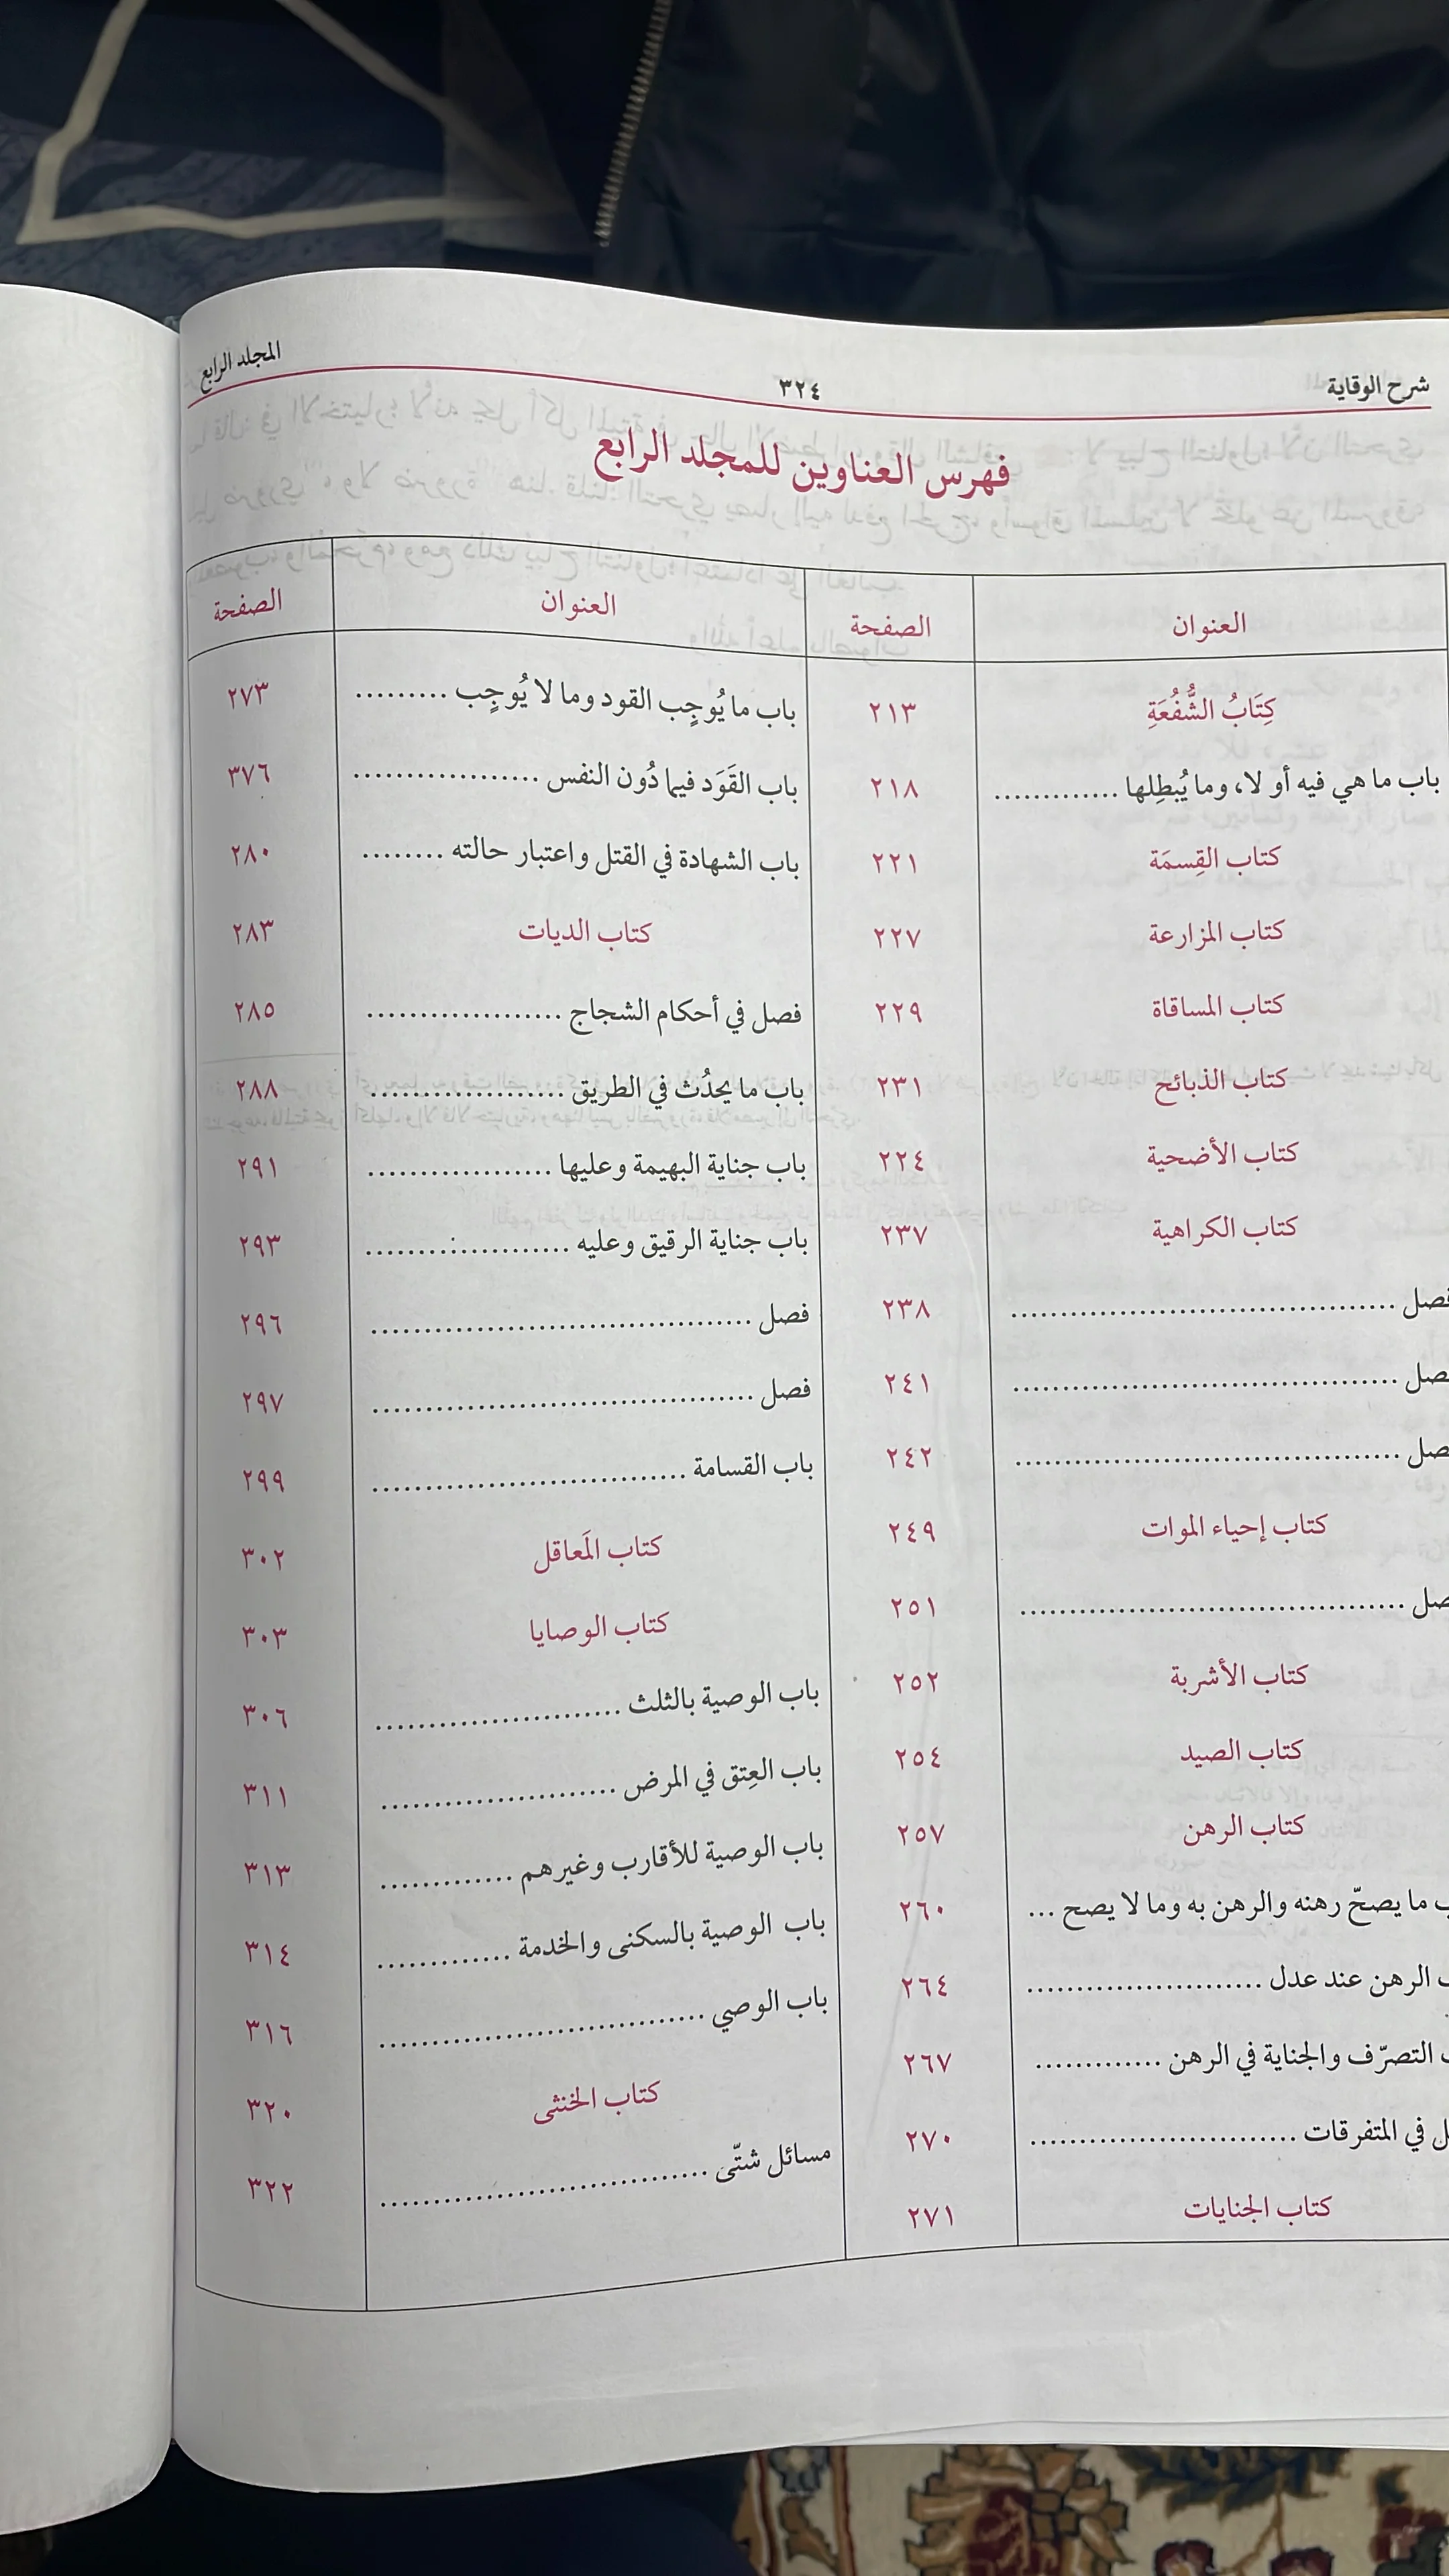 شرح الوقاية ٣٢٤ المجلد الرابع
فهرس العناوين للمجلد الرابع
العنوان الصفحة
كِتَابُ الشُّفُعَةِ ٢١٣
باب ما هي فيه أو لا، وما يُبطِلها ............. ٢١٨
كتاب القِسمَة ٢٢١
كتاب المزارعة ٢٢٧
كتاب المساقاة ٢٢٩
كتاب الذبائح ٢٣١
كتاب الأضحية ٢٢٤
كتاب الكراهية ٢٣٧
فصل ....................................... ٢٣٨
صل ....................................... ٢٤١
صل ....................................... ٢٤٢
كتاب إحياء الموات ٢٤٩
صل ....................................... ٢٥١
كتاب الأشربة ٢٥٢
كتاب الصيد ٢٥٤
كتاب الرهن ٢٥٧
ب ما يصحّ رهنه والرهن به وما لا يصح ... ٢٦٠
ب الرهن عند عدل ........................ ٢٦٤
ب التصرّف والجناية في الرهن ............. ٢٦٧
ل في المتفرقات ........................... ٢٧٠
كتاب الجنايات ٢٧١
العنوان الصفحة
باب ما يُوجِب القود وما لا يُوجِب ......... ٢٧٣
باب القَوَد فيما دُون النفس .................. ٣٧٦
باب الشهادة في القتل واعتبار حالته ........ ٢٨٠
كتاب الديات ٢٨٣
فصل في أحكام الشجاج ................... ٢٨٥
باب ما يحدُث في الطريق ................... ٢٨٨
باب جناية البهيمة وعليها .................. ٢٩١
باب جناية الرقيق وعليه .................... ٢٩٣
فصل ..................................... ٢٩٦
فصل ..................................... ٢٩٧
باب القسامة .............................. ٢٩٩
كتاب المَعاقل ٣٠٢
كتاب الوصايا ٣٠٣
باب الوصية بالثلث ........................ ٣٠٦
باب العِتق في المرض ....................... ٣١١
باب الوصية للأقارب وغيرهم ............. ٣١٣
باب الوصية بالسكنى والخدمة ............. ٣١٤
باب الوصي ................................ ٣١٦
كتاب الخنثى ٣٢٠
مسائل شتّى ................................ ٣٢٢